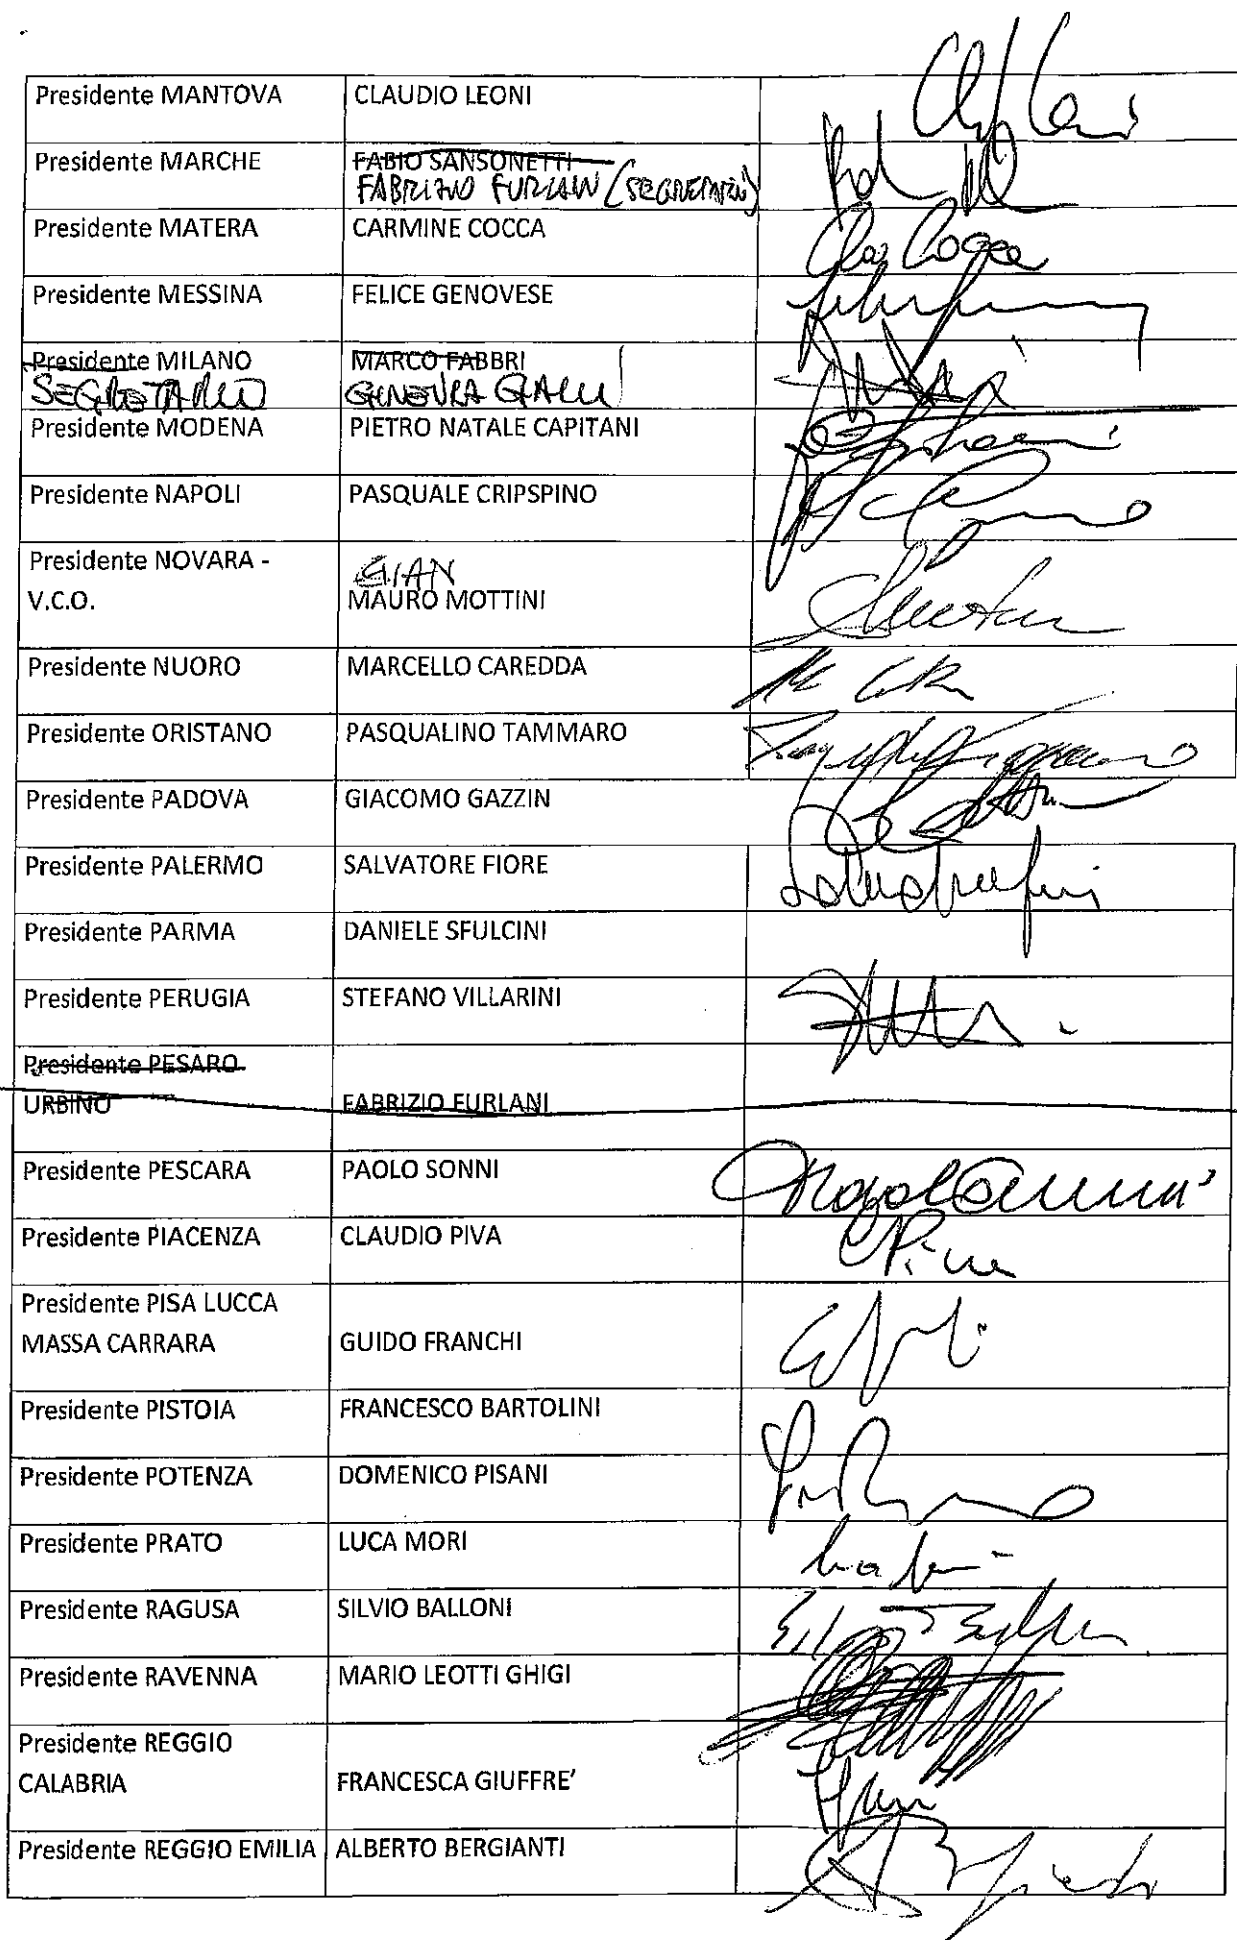 Presidente MANTOVA CLAUDIO LEONI
Presidente MARCHE FABIO SANSONETTI
FABRIZIO FURLANI (SEGRETARIO)
Presidente MATERA CARMINE COCCA
Presidente MESSINA FELICE GENOVESE
Presidente MILANO MARCO FABBRI
SEGRETARIO GINEVRA GALLI
Presidente MODENA PIETRO NATALE CAPITANI
Presidente NAPOLI PASQUALE CRIPSPINO
Presidente NOVARA - GIAN
V.C.O. MAURO MOTTINI
Presidente NUORO MARCELLO CAREDDA
Presidente ORISTANO PASQUALINO TAMMARO
Presidente PADOVA GIACOMO GAZZIN
Presidente PALERMO SALVATORE FIORE
Presidente PARMA DANIELE SFULCINI
Presidente PERUGIA STEFANO VILLARINI
Presidente PESARO
URBINO FABRIZIO FURLANI
Presidente PESCARA PAOLO SONNI
Presidente PIACENZA CLAUDIO PIVA
Presidente PISA LUCCA
MASSA CARRARA GUIDO FRANCHI
Presidente PISTOIA FRANCESCO BARTOLINI
Presidente POTENZA DOMENICO PISANI
Presidente PRATO LUCA MORI
Presidente RAGUSA SILVIO BALLONI
Presidente RAVENNA MARIO LEOTTI GHIGI
Presidente REGGIO
CALABRIA FRANCESCA GIUFFRE'
Presidente REGGIO EMILIA ALBERTO BERGIANTI